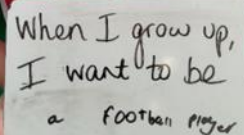 When I grow up,
I want to be
a football player